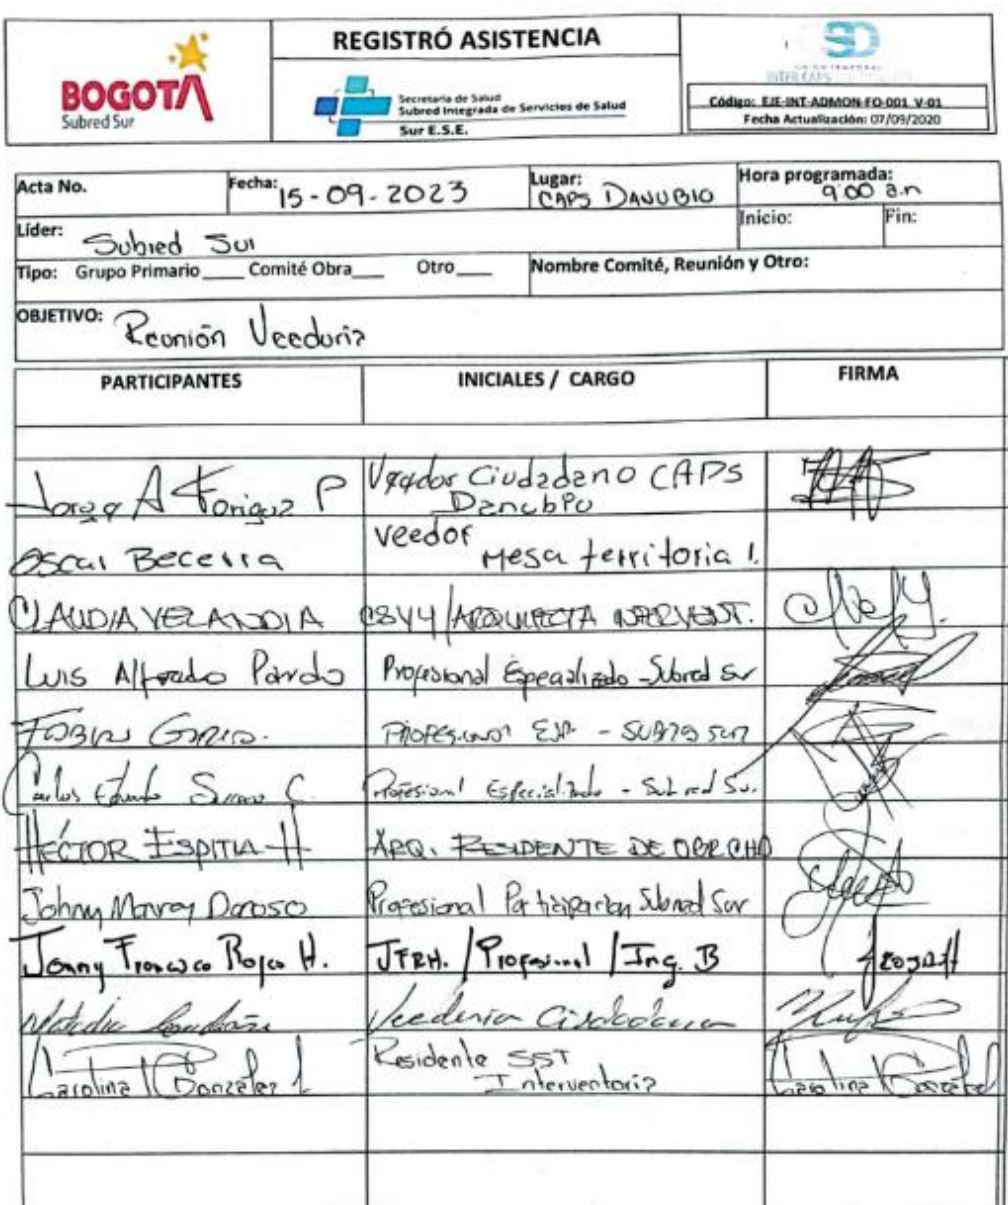 BOGOTÁ
Subred Sur
REGISTRÓ ASISTENCIA
Secretaría de Salud
Subred Integrada de Servicios de Salud
Sur E.S.E.
UNIÓN TEMPORAL
INTER CAPS
Código: EJE-INT-ADMON-FO-001 V-01
Fecha Actualización: 07/09/2020
Acta No. Fecha: 15-09-2023 Lugar: CAPS DANUBIO Hora programada: 9:00 a.n
Líder: Subred Sur Inicio: Fin:
Tipo: Grupo Primario ____ Comité Obra___ Otro____ Nombre Comité, Reunión y Otro:
OBJETIVO: Reunión Veeduria
PARTICIPANTES INICIALES / CARGO FIRMA
Jorge A P Veedor Ciudadano CAPS
Danubio
Oscar Becerra Veedor Mesa territorial.
CLAUDIA VELANDIA CSVY/ARQUITECTA INTERVENT.
Luis Alfredo Pardo Profesional Especializado - Subred Sur
Carlos Eduardo C. Profesional Especializado - Subred Sur.
HÉCTOR ESPITIA H ARQ. RESIDENTE DE
Johny Donoso Profesional Participacion Subred Sur
Jonny Francisco Rojas H. JFRH. / Profesional / Ing. B
Natalia Veeduria Ciudadana
Carolina González L Residente SST
Interventoria Carolina González